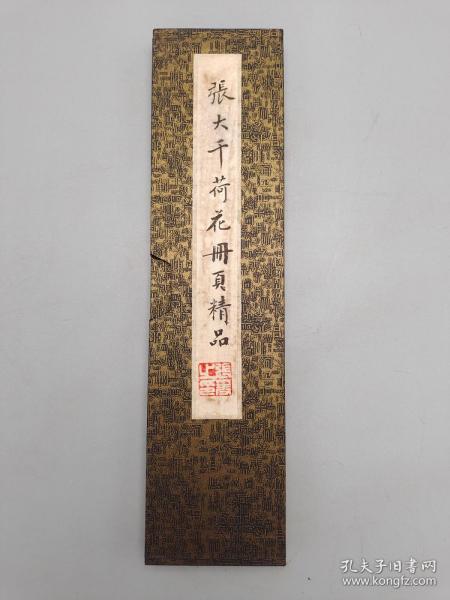 張大千荷花冊頁精品
孔夫子旧书网
www.kongfz.com